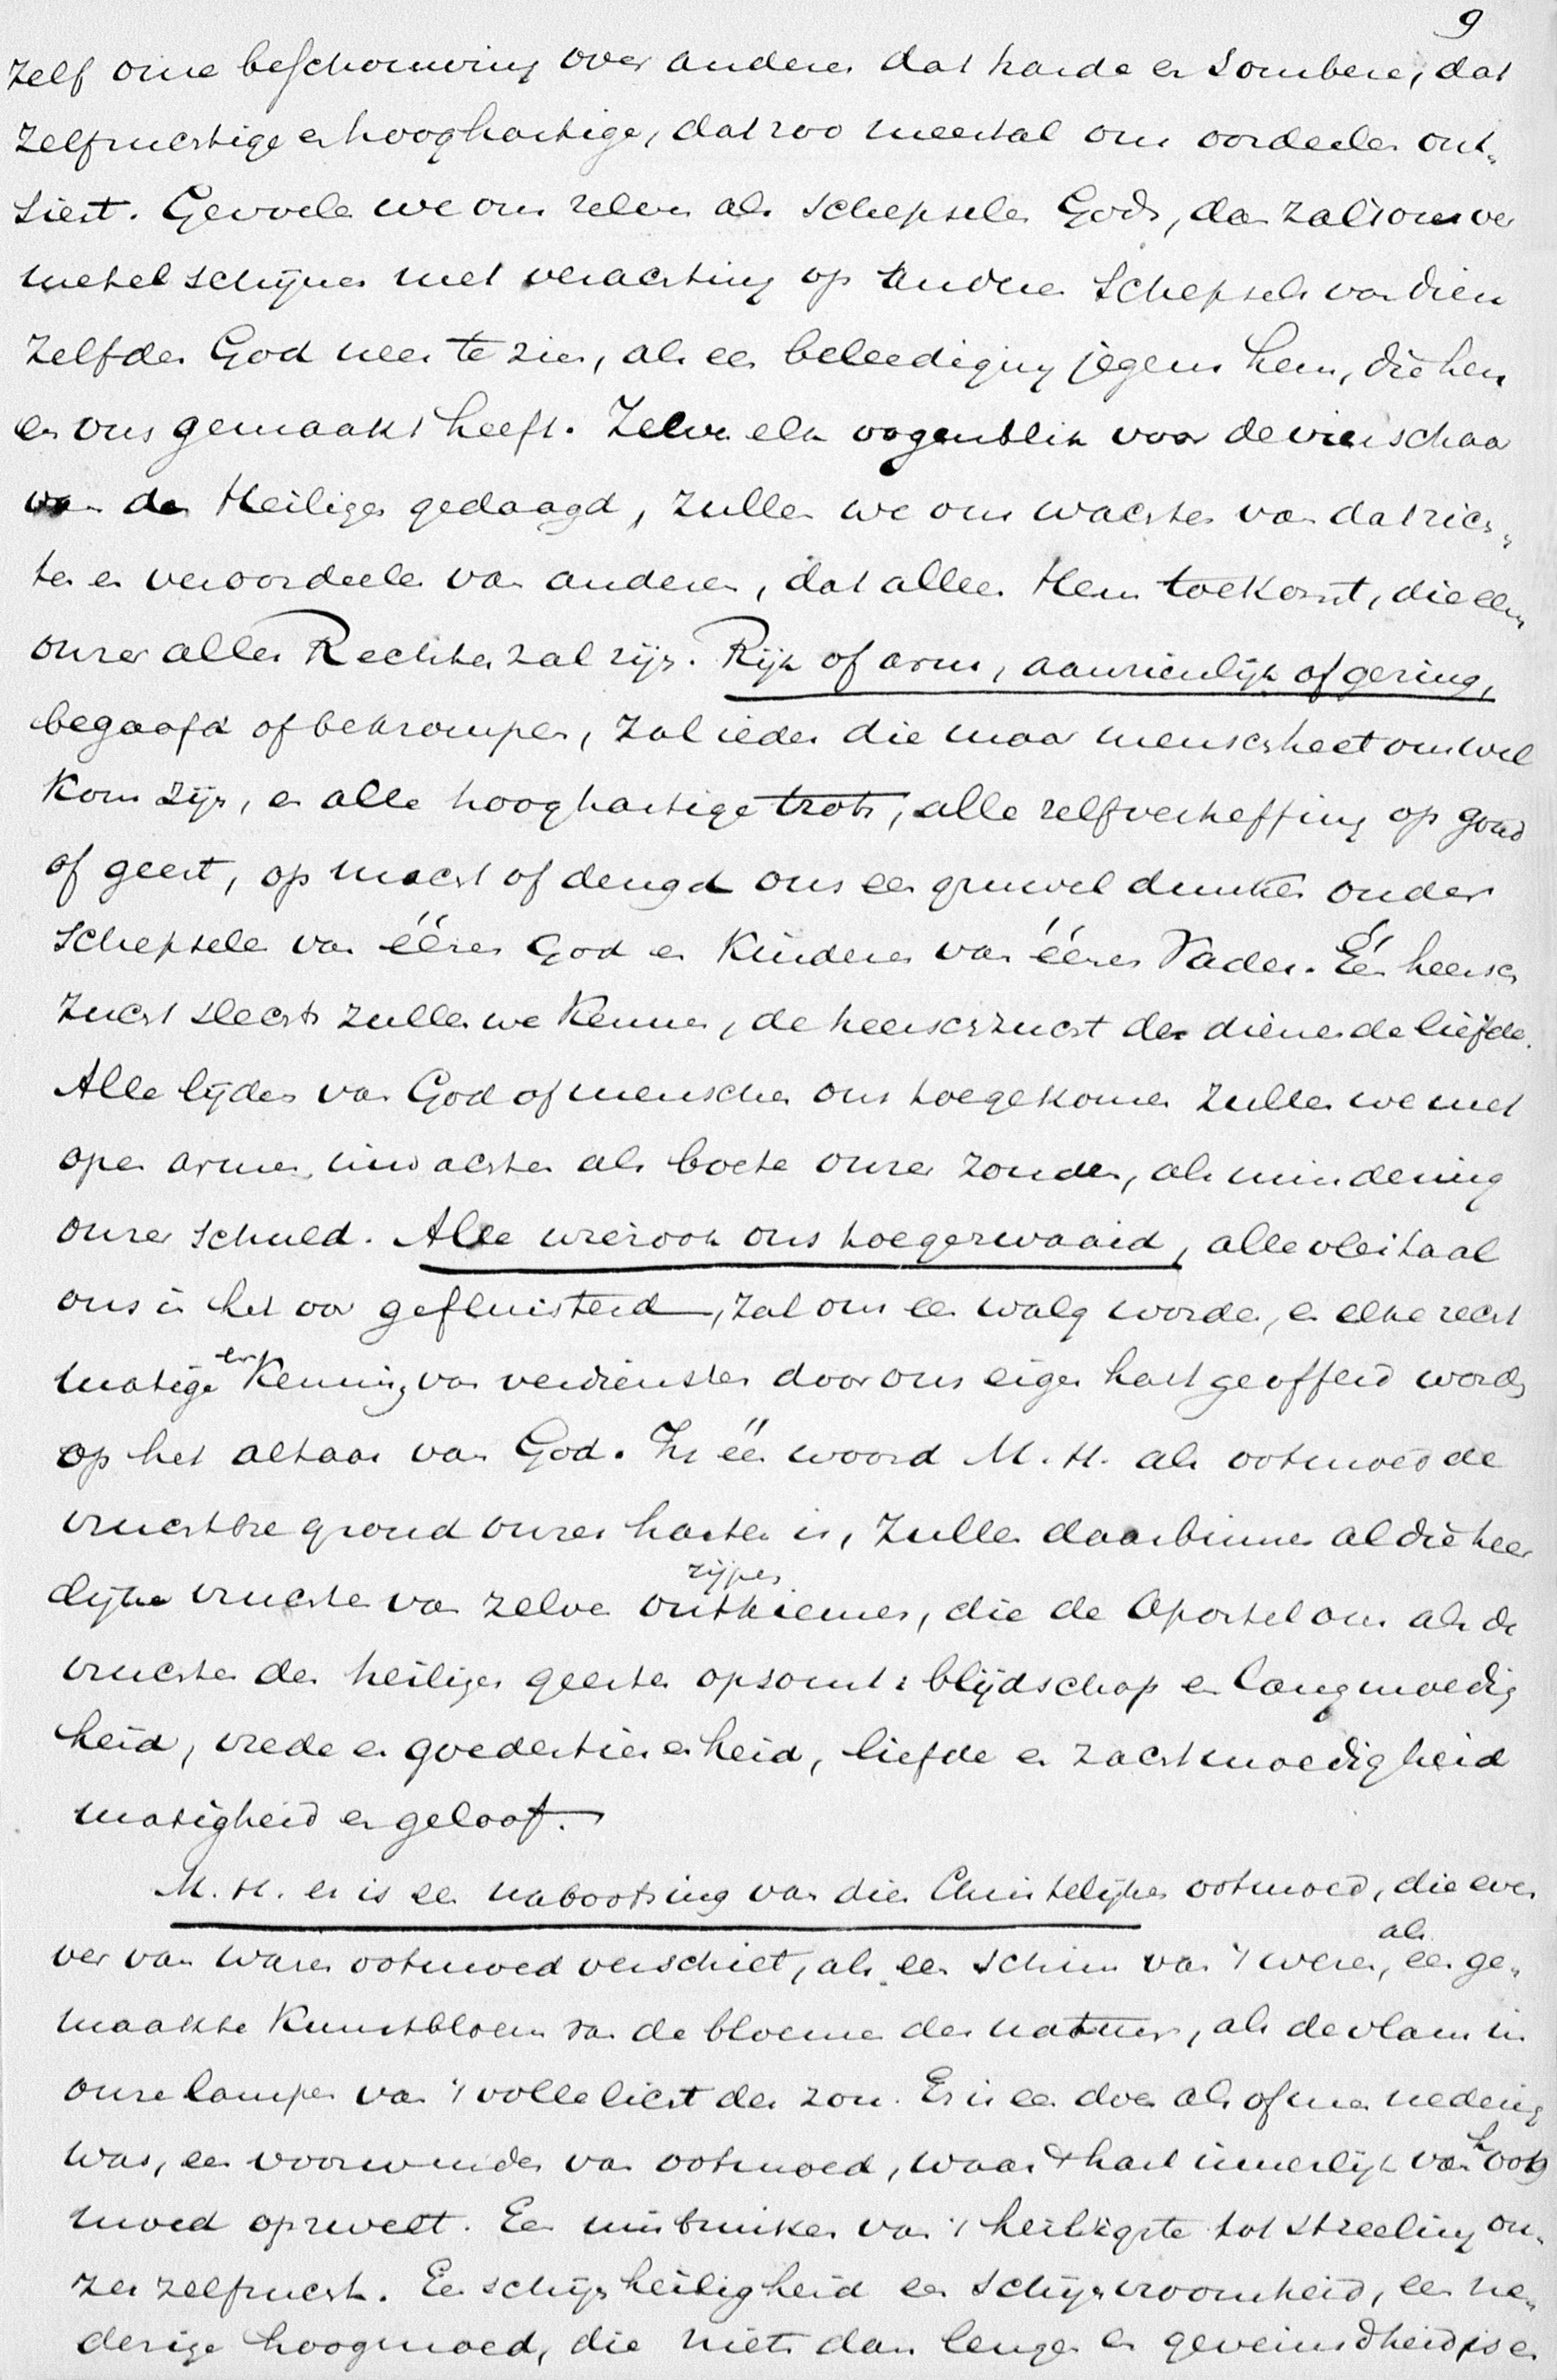 9
zelf onze beschouwing over anderen dat harde en sombere, dat
zelfzuchtige en hooghartige, dat zoo meestal ons oordeelen ont-
siert. Gevoelen we ons zelven als schepselen Gods, dan zal 't ons ver
metel schijnen met verachting op andere schepsels van dien
zelfden God neer te zien, als een beleediging jegens hem, die hen
en ons gemaakt heeft. Zelve elk oogenblik voor de vierschaar
van den Heiligen gedaagd, zullen we ons wachten van dat rich-
ten en veroordeelen van anderen, dat alleen Hem toekomt, die eens
onzer aller Rechter zal zijn. Rijk of arm, aanzienlijk of gering,
begaafd of bekrompen, zal ieder die maar mensch heet ons wel
kom zijn, en alle hooghartige trots, alle zelfverheffing op goud
of geest, op macht of deugd ons een gruwel dunken onder
schepselen van éénen God en kinderen van éénen Vader. Één heersch
zucht slechts zullen we kennen, de heerschzucht der dienende liefde.
Alle lijden van God of menschen ons toegekomen zullen we met
open armen inwachten als boete onzer zonden, als mindering
onzer schuld. Alle wierook ons toegezwaaid, alle vleitaal
ons in het oor gefluisterd, zal ons een walg worden, en elke recht
matige erkenning van verdiensten door ons eigen hart geofferd worden
op het altaar van God. In één woord M. H. als ootmoed de
vruchtbre grond onzer harten is, zullen daarbinnen al die heer
lijke vruchten van zelve ontkiemen, rijpen, die de Apostel ons als de
vruchten des heiligen geestes opsomt: blijdschap en langmoedig
heid, vrede en goedertierenheid, liefde en zachtmoedigheid
matigheid en geloof.
M. H. er is een nabootsing van dien Christelijken ootmoed, die even
ver van waren ootmoed verschilt, als een schim van 't wezen, als een ge-
maakte kunstbloem van de bloemen der natuur, als de vlam in
onze lampen van 't volle licht der zon. Er is een doen alsof men nederig
was, een voorwenden van ootmoed, waar 't hart innerlijk van hoog
moed opzwelt. Een misbruiken van 't heiligste tot streeling on-
zer zelfzucht. Een schijnheiligheid een schijnvroomheid, een ne-
derige hoogmoed, die niets dan leugen en geveinsdheid is en